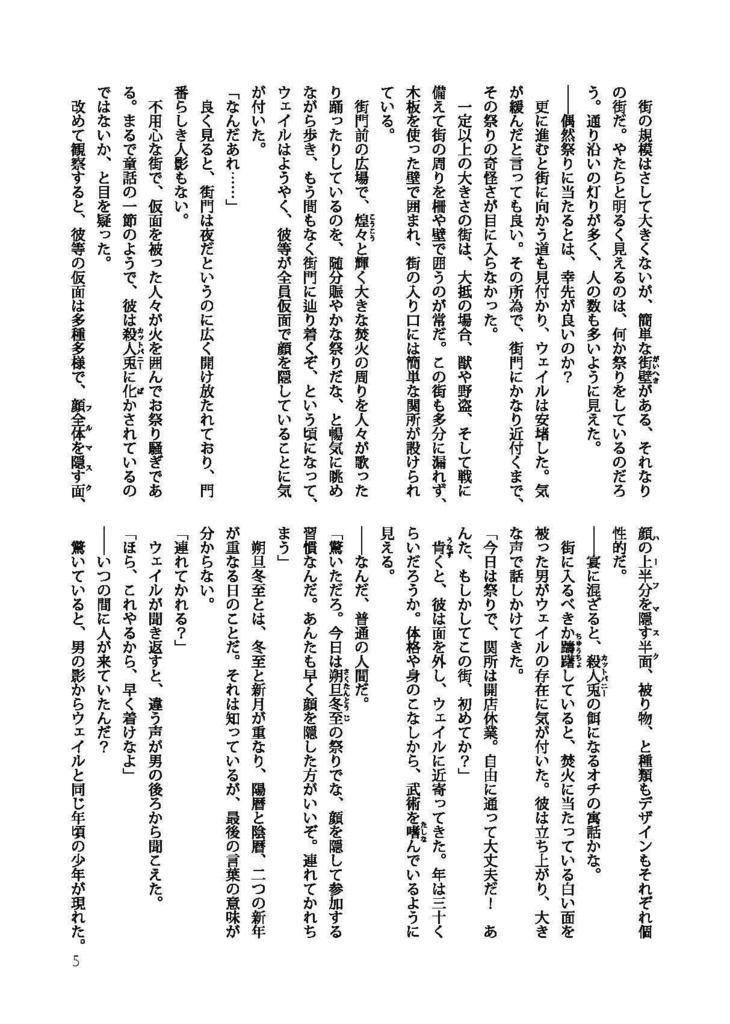 街の規模はさして大きくないが、簡単な街壁がある、それなり
の街だ。やたらと明るく見えるのは、何か祭りをしているのだろ
う。通り沿いの灯りが多く、人の数も多いように見えた。
――偶然祭りに当たるとは、幸先が良いのか？
更に進むと街に向かう道も見付かり、ウェイルは安堵した。気
が緩んだと言っても良い。その所為で、街門にかなり近付くまで、
その祭りの奇怪さが目に入らなかった。
一定以上の大きさの街は、大抵の場合、獣や野盗、そして戦に
備えて街の周りを柵や壁で囲うのが常だ。この街も多分に漏れず、
木板を使った壁で囲まれ、街の入り口には簡単な関所が設けられ
ている。
街門前の広場で、煌々と輝く大きな焚火の周りを人々が歌った
り踊ったりしているのを、随分賑やかな祭りだな、と暢気に眺め
ながら歩き、もう間もなく街門に辿り着くぞ、という頃になって、
ウェイルはようやく、彼等が全員仮面で顔を隠していることに気
が付いた。
「なんだあれ……」
良く見ると、街門は夜だというのに広く開け放たれており、門
番らしき人影もない。
不用心な街で、仮面を被った人々が火を囲んでお祭り騒ぎであ
る。まるで童話の一節のようで、彼は殺人兎に化かされているの
ではないか、と目を疑った。
改めて観察すると、彼等の仮面は多種多様で、顔全体を隠す面、
顔の上半分を隠す半面、被り物、と種類もデザインもそれぞれ個
性的だ。
――宴に混ざると、殺人兎の餌になるオチの寓話かな。
街に入るべきか躊躇していると、焚火に当たっている白い面を
被った男がウェイルの存在に気が付いた。彼は立ち上がり、大き
な声で話しかけてきた。
「今日は祭りで、関所は開店休業。自由に通って大丈夫だ！　あ
んた、もしかしてこの街、初めてか？」
肯くと、彼は面を外し、ウェイルに近寄ってきた。年は三十く
らいだろうか。体格や身のこなしから、武術を嗜んでいるように
見える。
――なんだ、普通の人間だ。
「驚いただろ。今日は朔旦冬至の祭りでな、顔を隠して参加する
習慣なんだ。あんたも早く顔を隠した方がいいぞ。連れてかれち
まう」
朔旦冬至とは、冬至と新月が重なり、陽暦と陰暦、二つの新年
が重なる日のことだ。それは知っているが、最後の言葉の意味が
分からない。
「連れてかれる？」
ウェイルが聞き返すと、違う声が男の後ろから聞こえた。
「ほら、これやるから、早く着けなよ」
――いつの間に人が来ていたんだ？
驚いていると、男の影からウェイルと同じ年頃の少年が現れた。
5